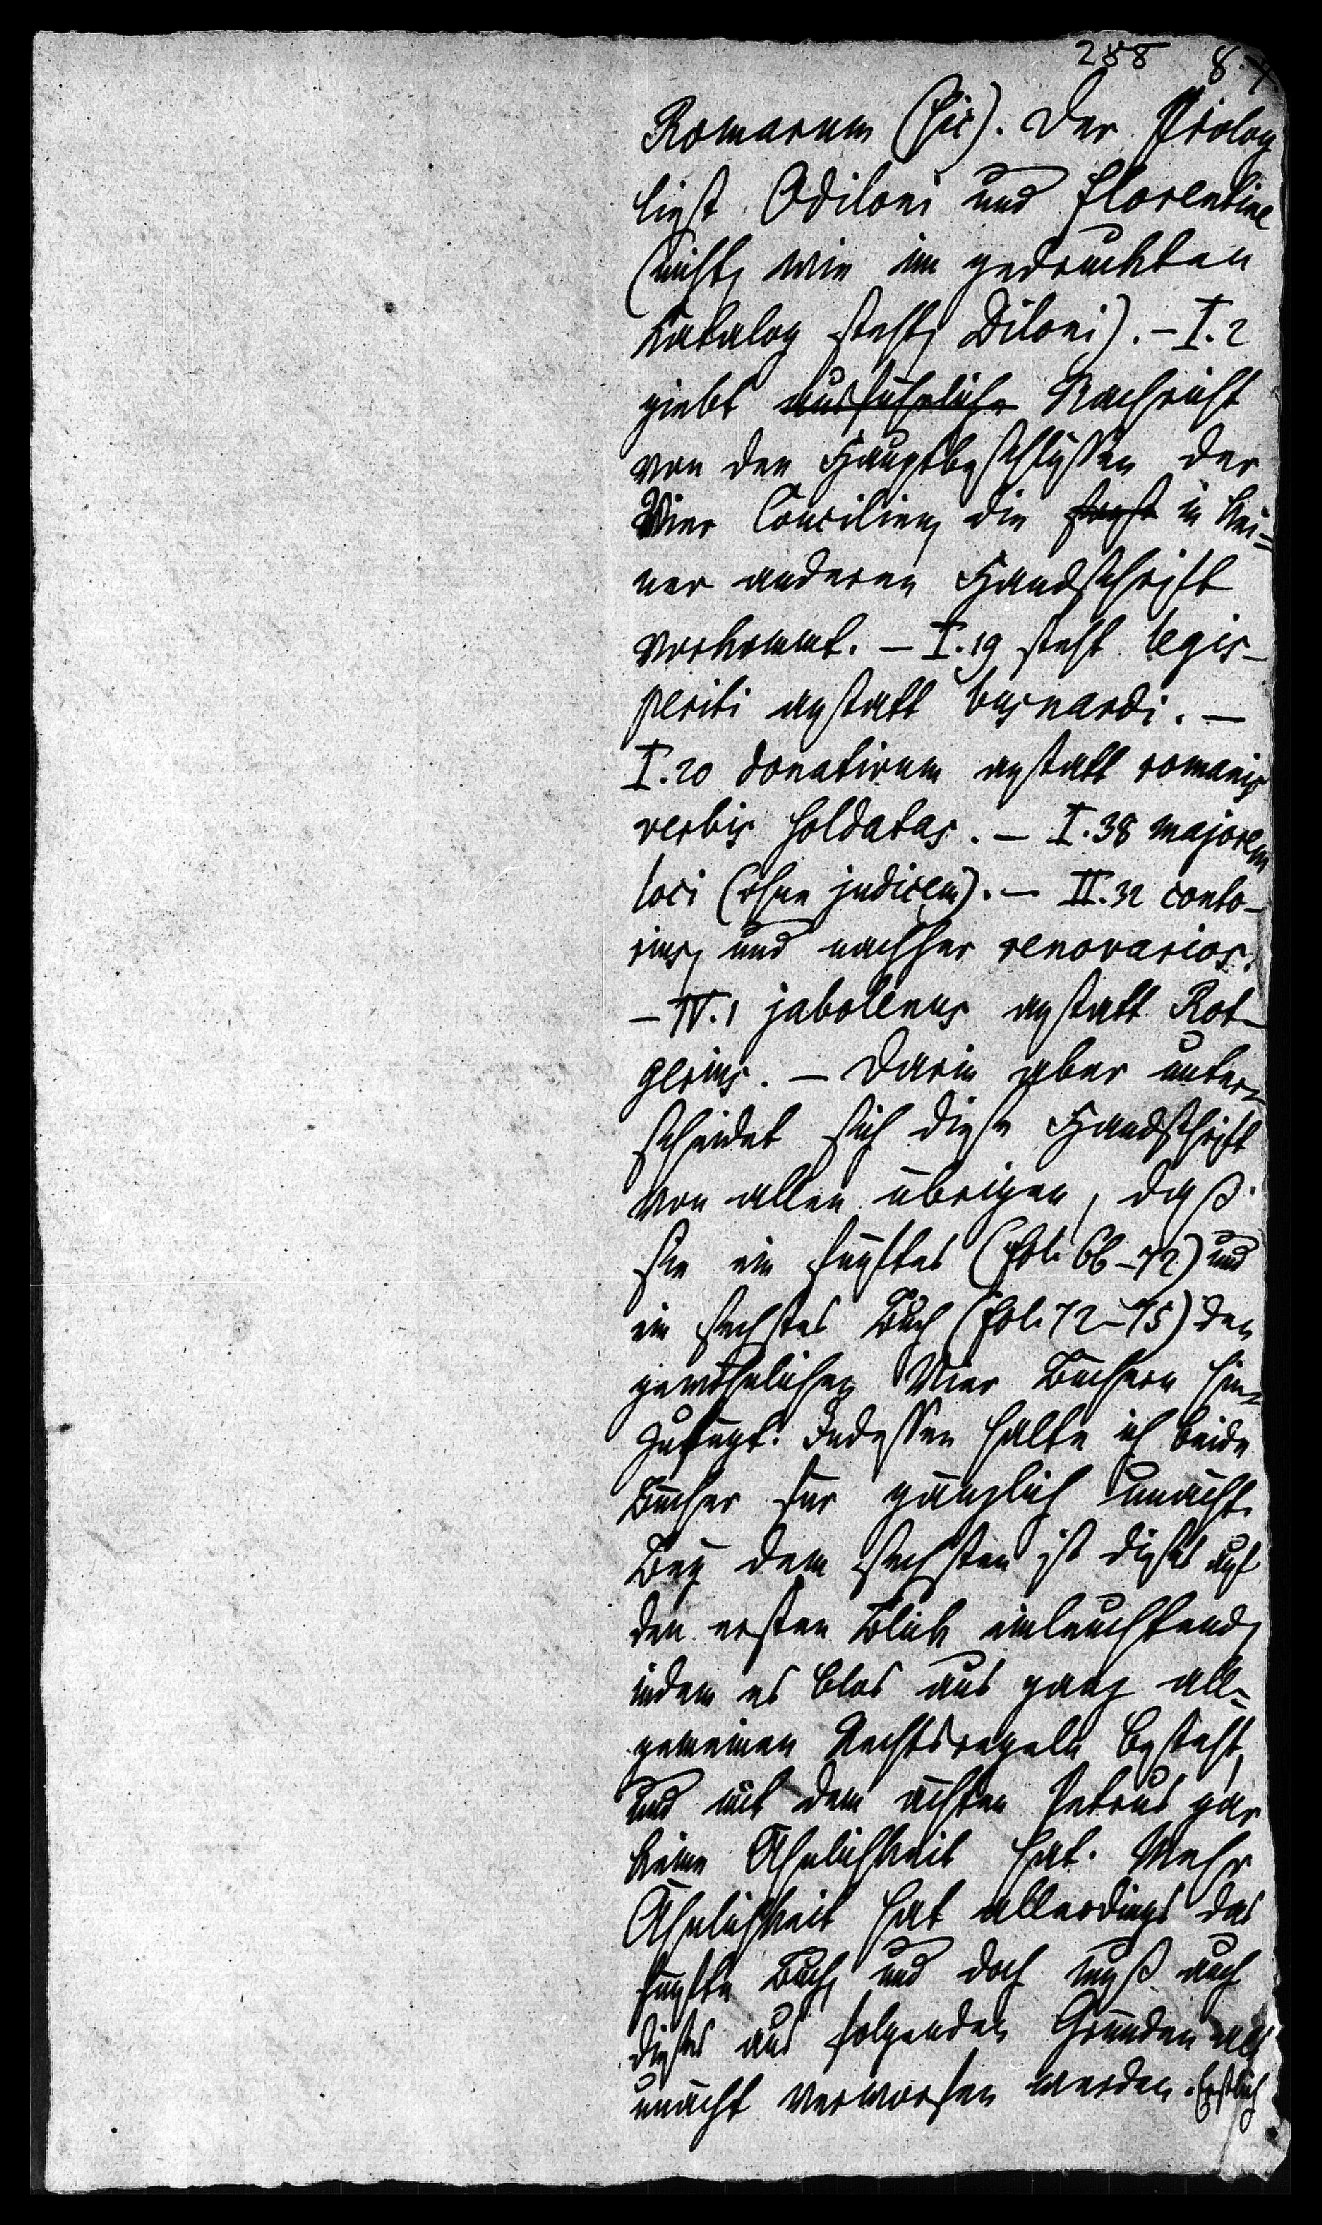 288 8.
Romarum (sic). Der Prolog
liest Odiloni und florentine
(nicht, wie im gedruckten
Katalog steht, Diloni). – I. 2
giebt ausführliche Nachricht
von den Hauptbeschlüssen der
Vier Concilien, die sonst in kei=
ner anderen Handschrift
vorkommt. – I. 19 steht legis-
periti anstatt busnardi. –
I. 20 donativum anstatt romanis
verbis soldatas. – I. 38 majorem
loci (ohne judicem). – II. 32 conto-
rius, und nachher renovarios.
– IV. 1 jabollenus anstatt Rot-
gerius. – Darin aber unter=
scheidet sich diese Handschrift
von allen übrigen, daß
sie ein fünftes (fol. 66–72) und
ein sechstes Buch (fol. 72–75) den
gewöhnlichen Vier Büchern hin=
zufügt. Indessen halte ich beide
Bücher für gänzlich unächt.
Bey dem sechsten ist dieses auf
den ersten Blick einleuchtend,
indem es blos aus ganz all=
gemeinen Rechtsregeln besteht,
und mit dem ächten Petrus gar
keine Ähnlichkeit hat. Mehr
Ähnlichkeit hat allerdings das
fünfte Buch, und doch muß auch
dieses aus folgenden Gründen als
unächt verworfen werden. Erstlich